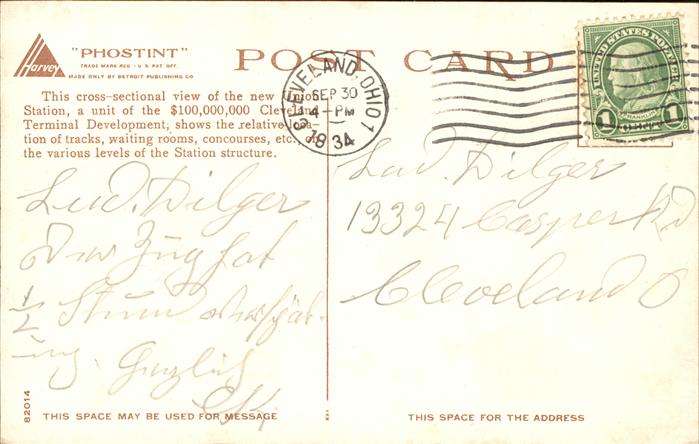 "PHOSTINT"
TRADE MARK REG · U S PAT OFF
MADE ONLY BY DETROIT PUBLISHING CO
Harvey
POST CARD
This cross-sectional view of the new Union
Station, a unit of the $100,000,000 Cleveland
Terminal Development, shows the relative
tion of tracks, waiting rooms, concourses, etc.,
the various levels of the Station structure.
CLEVELAND, OHIO 1
SEP 30
4-PM
1934
UNITED STATES POSTAGE
FRANKLIN
1 1
Lud. Dilger
Der Zug hat
1/2 Stund Verspät-
ung.
Lud. Dilger
13324 Casper Rd
Cleveland O
82014
THIS SPACE MAY BE USED FOR MESSAGE
THIS SPACE FOR THE ADDRESS